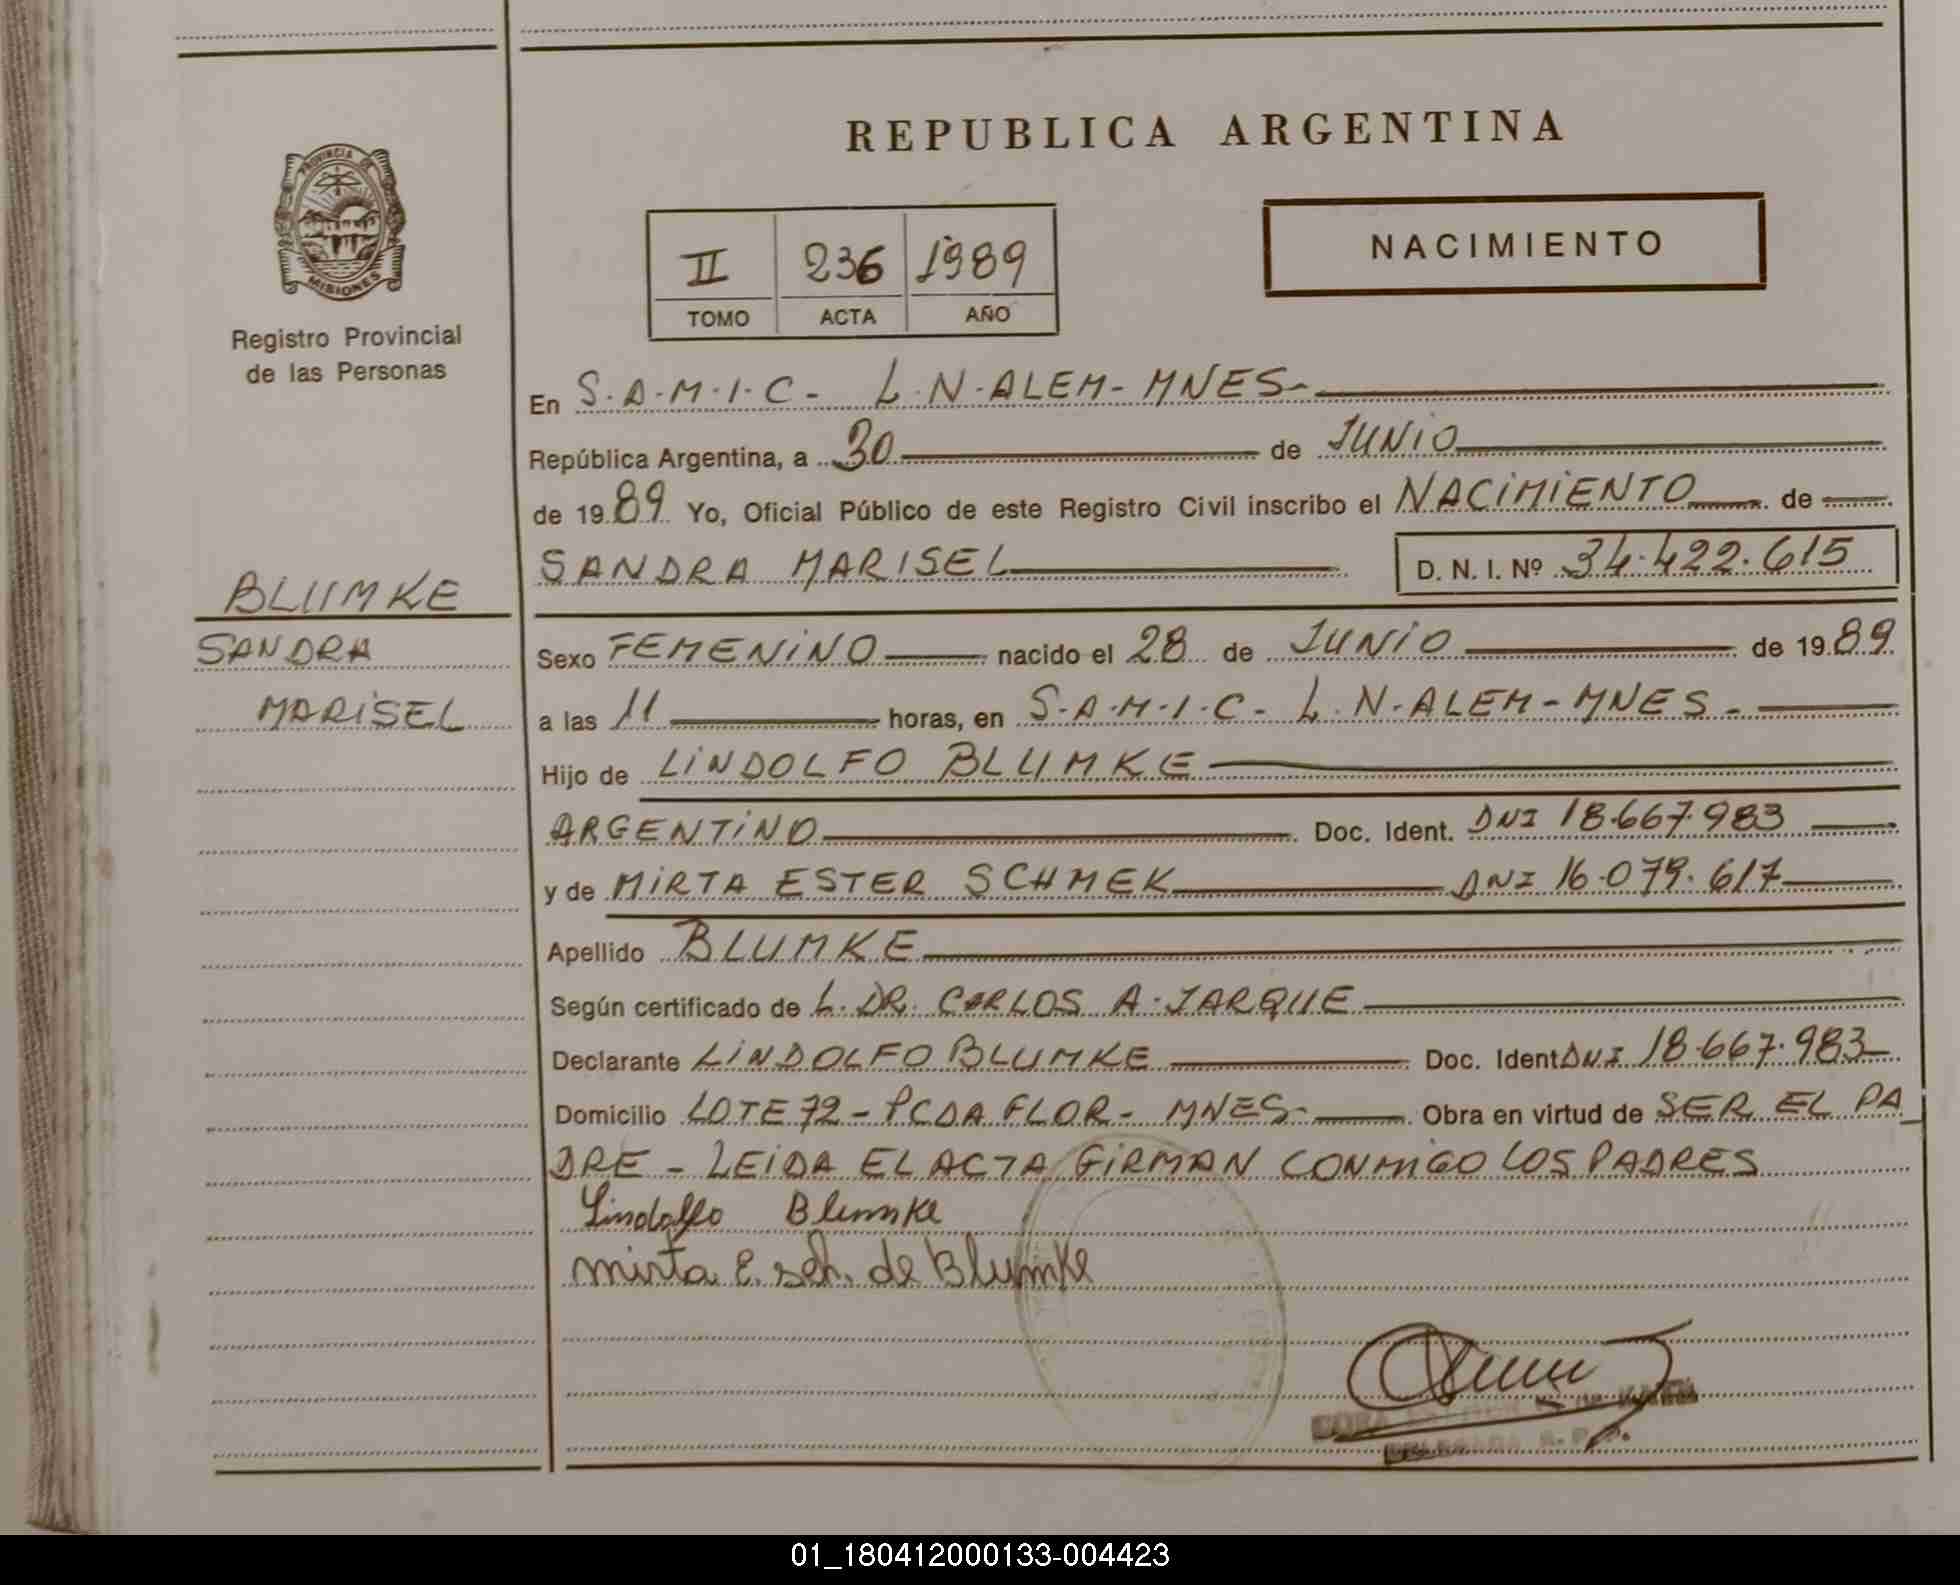 REPUBLICA ARGENTINA
PROVINCIA DE
MISIONES
Registro Provincial
de las Personas
II 236 1989
TOMO ACTA AÑO
NACIMIENTO
En S.A.M.I.C- L.N.ALEM-MNES-
República Argentina, a 30 de JUNIO
de 1989 Yo, Oficial Público de este Registro Civil inscribo el NACIMIENTO de
SANDRA MARISEL D. N. I. Nº 34.422.615
BLUMKE
SANDRA
MARISEL
Sexo FEMENINO nacido el 28 de JUNIO de 1989
a las 11 horas, en S.A.M.I.C- L.N.ALEM-MNES-
Hijo de LINDOLFO BLUMKE
ARGENTINO Doc. Ident. DNI 18.667.983
y de MIRTA ESTER SCHMEK DNI 16.079.617
Apellido BLUMKE
Según certificado de L. DR. CARLOS A. JARQUE
Declarante LINDOLFO BLUMKE Doc. Ident DNI 18.667.983
Domicilio LOTE 72-PCDA FLOR- MNES- Obra en virtud de SER EL PA
DRE - LEIDA EL ACTA FIRMAN CONMIGO LOS PADRES
Lindolfo Blumke
mirta E. sch. de Blumke
01_180412000133-004423